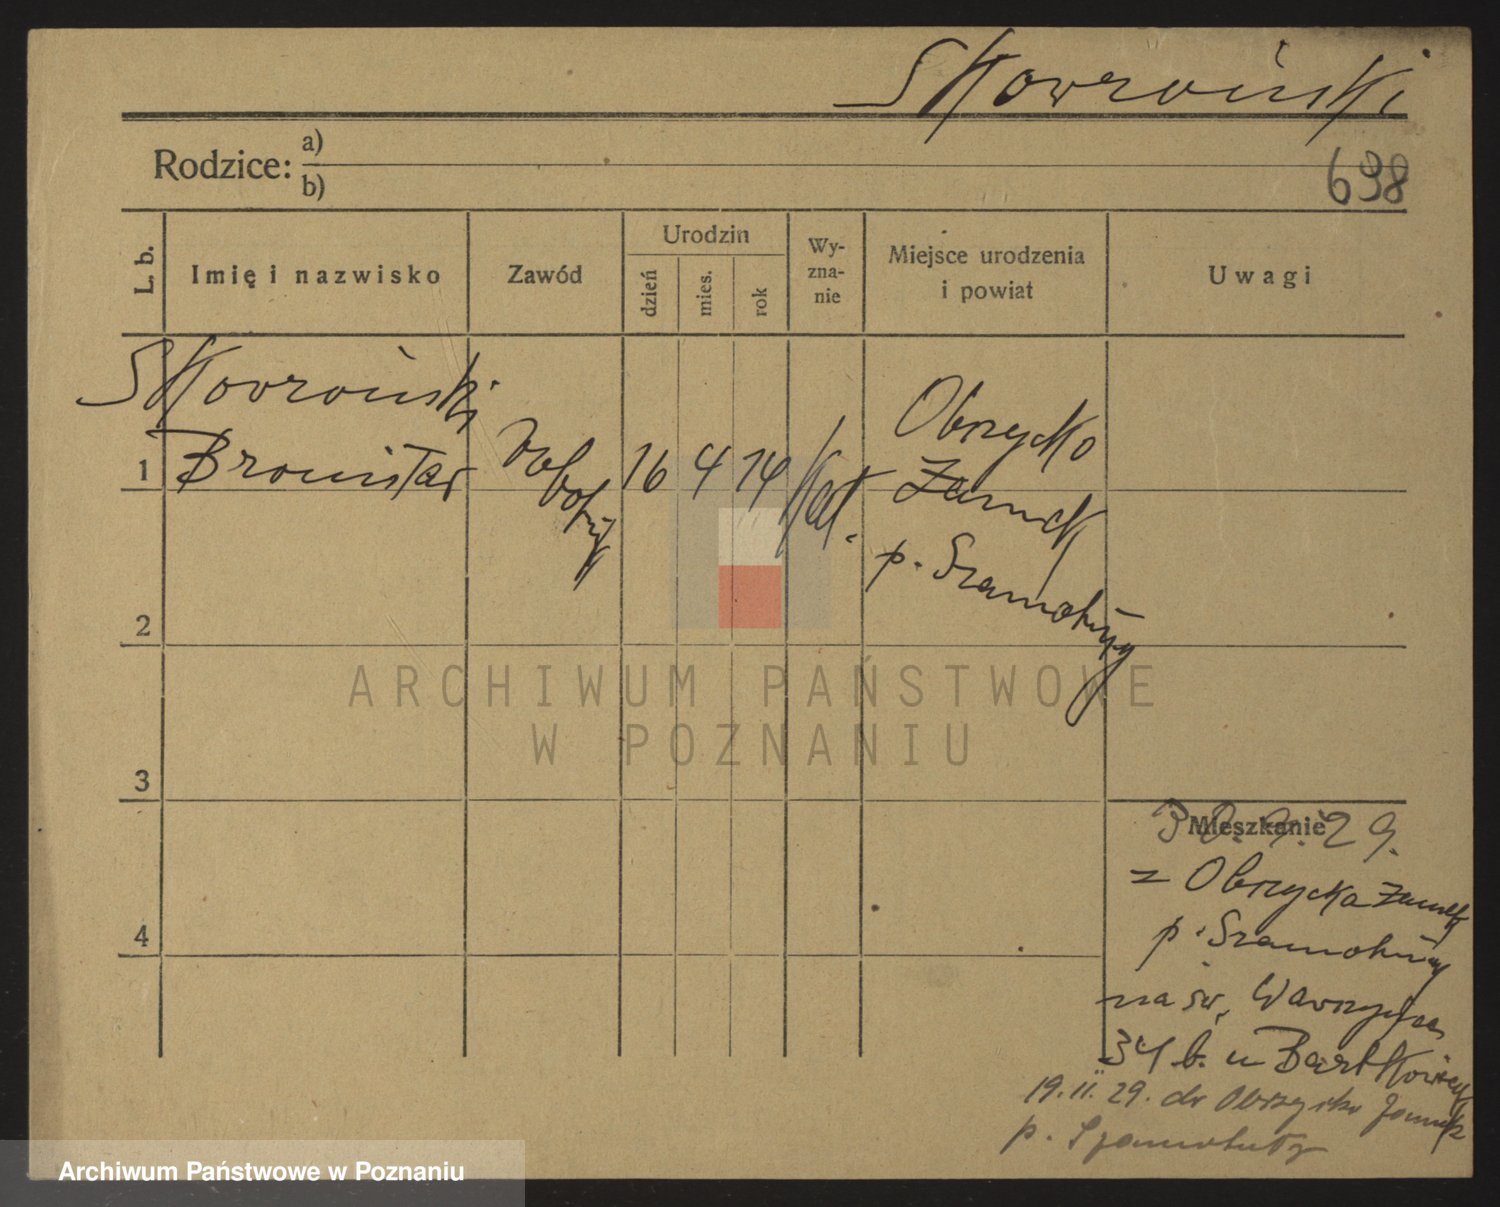 Skowroński
Rodzice: a)
b)
698
L. b.
Imię i nazwisko
Zawód
Urodzin
dzień
mies.
rok
Wy-
zna-
nie
Miejsce urodzenia
i powiat
Uwagi
Skowroński
1 Bronisław
robotny
16 4 14
Kat.
Obrzycko
Zamek
p. Szamotuły
2
3
4
Mieszkanie
29.
z Obrzycka Zamek
p. Szamotuły
na św. Wawrzyńca
34 b. u Bartkowiak
19.11.29. do Obrzycko Zamek
p. Szamotuły
ARCHIWUM PAŃSTWOWE
W POZNANIU
Archiwum Państwowe w Poznaniu